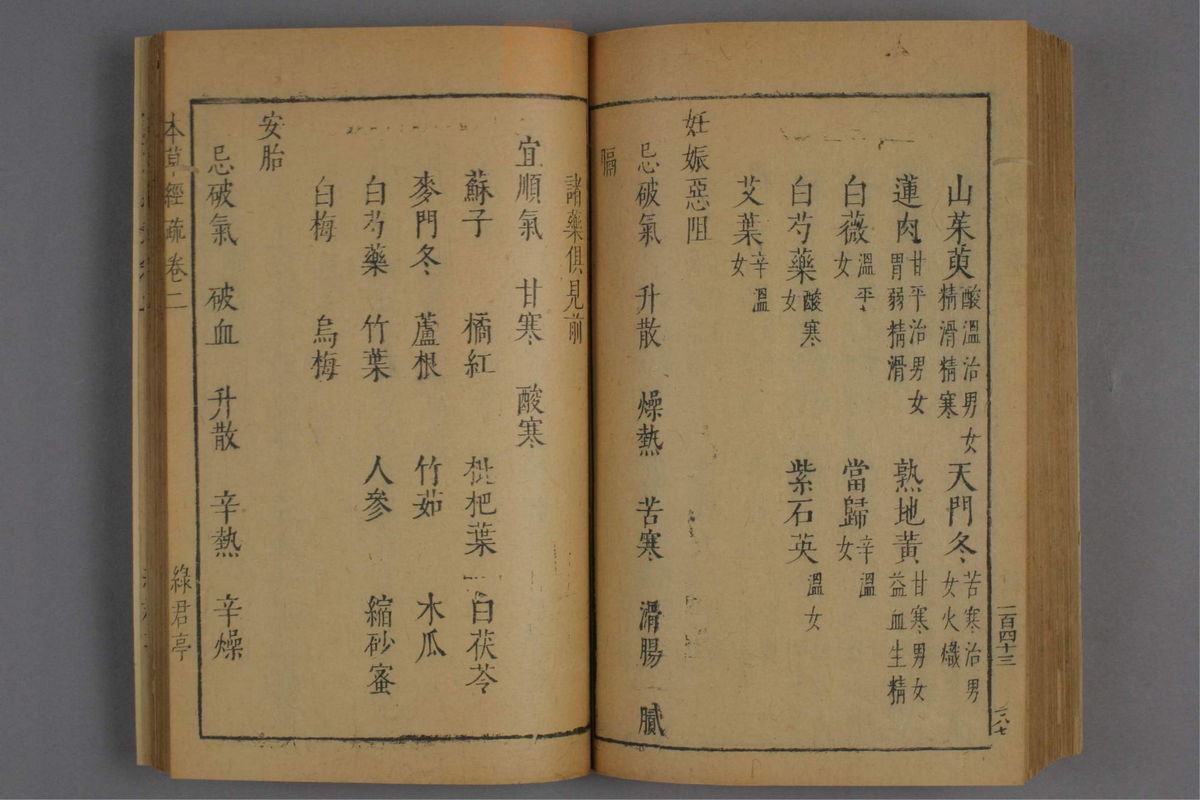 山茱萸酸溫治男女精滑精寒　天門冬苦寒治男女火熾
蓮肉甘平治男女胃弱精滑　熟地黃甘寒男女益血生精
白薇溫平女　當歸辛溫女
白芍藥酸寒女　紫石英溫女
艾葉辛溫女
妊娠惡阻
忌破氣　升散　燥熱　苦寒　滑腸　膩
膈
諸藥俱見前
宜順氣　甘寒　酸寒
蘇子　橘紅　枇杷葉　白茯苓
麥門冬　蘆根　竹茹　木瓜
白芍藥　竹葉　人參　縮砂蜜
白梅　烏梅
安胎
忌破氣　破血　升散　辛熱　辛燥
本草經疏卷二　綠君亭
一百四十三